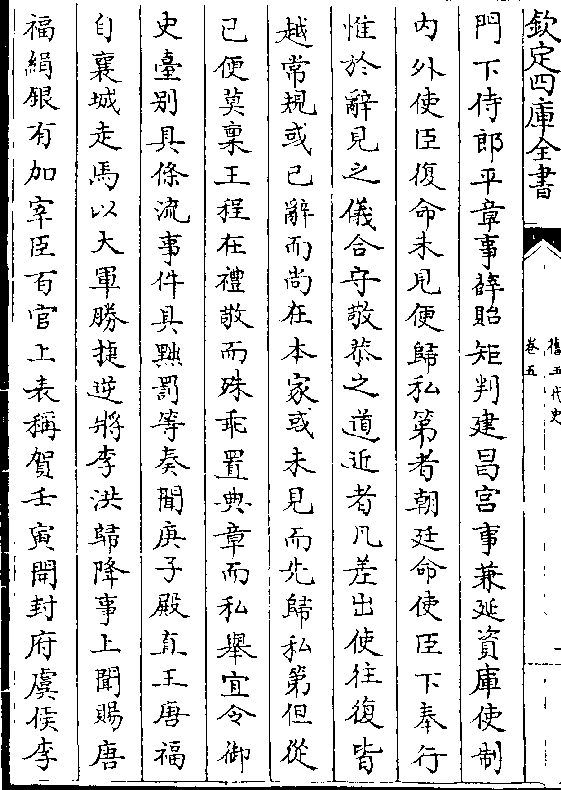 欽定四庫全書
舊五代史
卷五
門下侍郎平章事薛貽矩判建昌宮事兼延資庫使制
内外使臣復命未見便歸私第者朝廷命使臣下奉行
惟於辭見之儀合守敬恭之道近者凡差出使往復皆
越常規或已辭而尚在本家或未見而先歸私第但從
已便莫稟王程在禮敬而殊乖置典章而私舉宜令御
史臺别具條流事件具黜罰等奏聞庚子殿直王唐福
自襄城走馬以大軍勝捷逆將李洪歸降事上聞賜唐
福絹銀有加宰臣百官上表稱賀壬寅開封府虞侯李